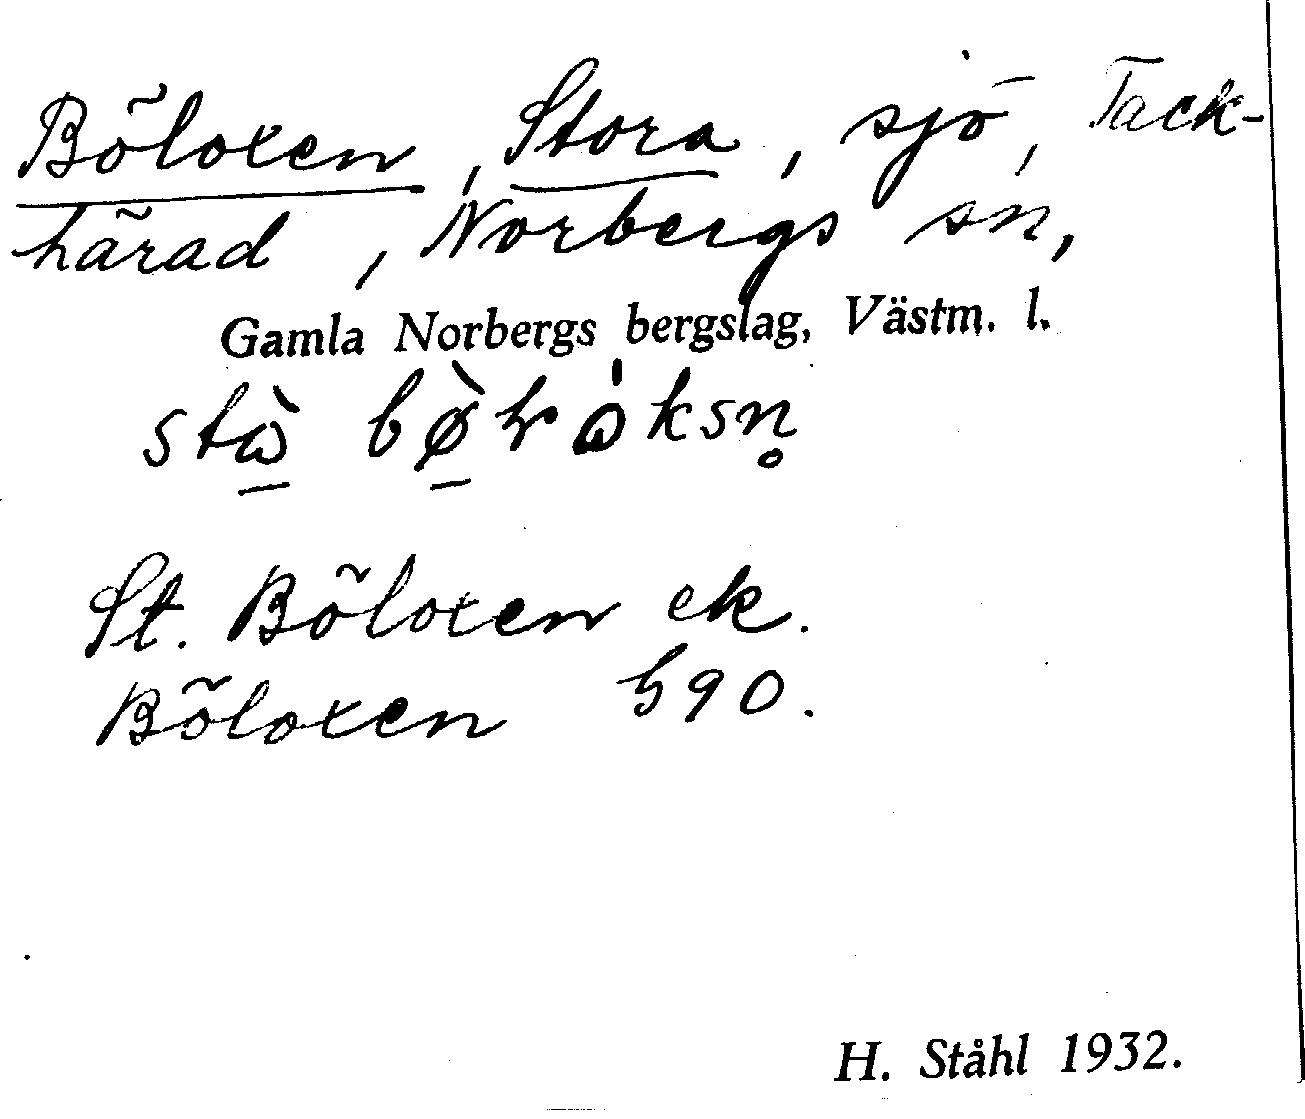 Böloxen, Stora, sjö, Tack-
härad, Norbergs sn,
Gamla Norbergs bergslag, Västm. l.
St. Böloxen ek.
Böloxen h90.
H. Ståhl 1932.